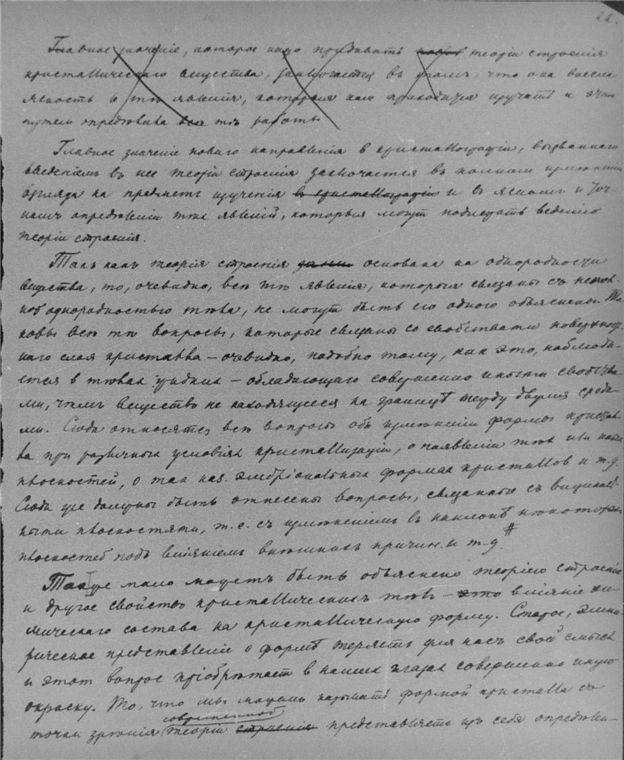 22.
Главное значение, которое надо придавать теории строения
кристаллического вещества, заключается в том, что она внесла
ясность в те явления, которые нам приходится изучать и этим
путем определила все те работы
Главное значеніе новаго направленія в кристаллографіи, вызваннаго
введеніем в нее теоріи строенія заключается в полном измѣненіи
взгляда на предметъ изученія в кристаллографіи и в ясном и точ-
номъ опредѣленіи тѣхъ явленій, которыя могут подлежать веденію
теоріи строенія.
Такъ какъ теорія строенія основана на однородности
вещества, то, очевидно, все тѣ явленія, которыя связаны съ непол-
ной однородностью тѣла, не могут быть ею одного объяснены. Та-
ковы всѣ тѣ вопросы, которые связаны со свойствами поверхност-
наго слоя кристалла – очевидно, подобно тому, как это, наблюда-
ется в тѣлах жидких – обладающаго совершенно иными свойства-
ми, чѣмъ вещество не находящееся на границѣ между двумя среда-
ми. Сюда относятся все вопросы объ измѣненіи формы кристал-
ла при различных условіях кристаллизаціи, о появленіи тѣхъ или иных
плоскостей, о так наз. эмбріональных формах кристаллов и т.д.
Сюда же должны быть отнесены вопросы, связанные съ вициналь-
ными плоскостями, т.е. съ измѣненіемъ в наклонѣ некоторых
плоскостей подъ вліяніемъ внѣшних причин и т.д. #
Также мало можетъ быть объяснено теоріею строенія
и другое свойство кристаллическихъ тѣлъ – это вліяніе хи-
мическаго состава на кристаллическую форму. Старое, эмпи-
рическое представленіе о формѣ теряетъ для насъ свой смысл
и этот вопрос пріобрѣтает в наших глазах совершенно иную
окраску. То, что мы можемъ называть формой кристалла съ
точки зрѣнія современной теоріи строенія представляетъ изъ себя опредѣлен-